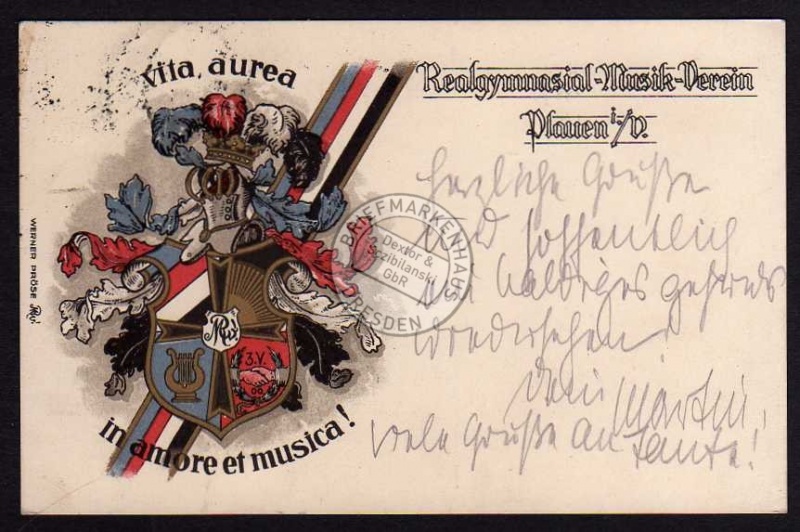 vita, aurea
Realgymnasial-Musik-Verein
Plauen i./V.
Herzliche Grüße
und hoffentlich
ein baldiges gesundes
Wiedersehen!
Dein Martin,
Viele Grüße an Tante!
WERNER PRÖSE
3.V.
in amore et musica!
BRIEFMARKENHAUS
Dexter &
Przibilanski
GbR
DRESDEN